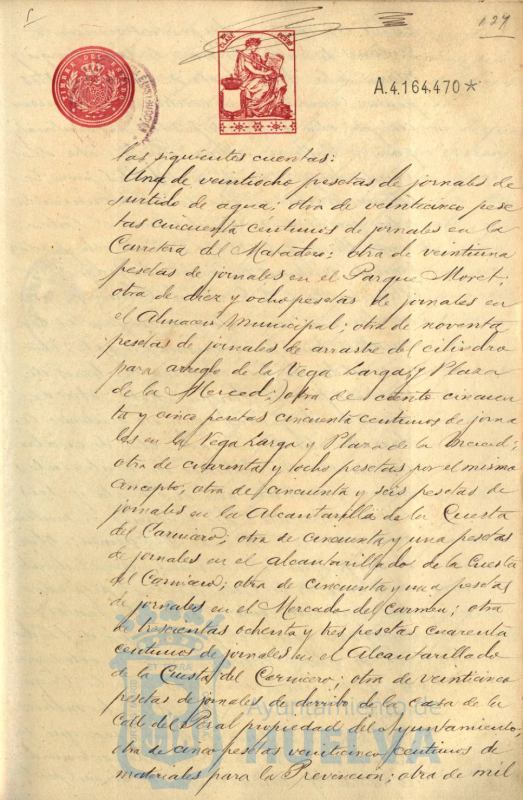 127
TIMBRE DEL ESTADO
A.4.164.470*
las siguientes cuentas:
Una de veintiocho pesetas de jornales de
surtido de agua; otra de veinticinco pese
tas cincuenta centimos de jornales en la
Carretera del Matadero; otra de veintiuna
pesetas de jornales en el Parque Moret;
otra de diez y ocho pesetas de jornales en
el Almacen Municipal; otra de noventa
pesetas de jornales de arrastre del cilindro
para arreglo de la Vega Larga y Plaza
de la Merced; otra de ciento cincuen
ta y cinco pesetas cincuenta centimos de jorna
les en la Vega Larga y Plaza de la Merced;
otra de cuarenta y ocho pesetas por el mismo
concepto; otra de cincuenta y seis pesetas de
jornales en la Alcantarilla de la Cuesta
del Carnicero; otra de cincuenta y una pesetas
de jornales en el alcantarillado de la Cuesta
del Carnicero; otra de cincuenta y una pesetas
de jornales en el Mercado del Carmen; otra
de trescientas ochenta y tres pesetas cuarenta
centimos de jornales en el Alcantarillado
de la Cuesta del Carnicero; otra de veinticinco
pesetas de jornales de derribo de la Casa de la
Calle del Peral propiedad del Ayuntamiento;
otra de cinco pesetas veinticinco centimos de
materiales para la Prevencion; otra de mil
Ayuntamiento de
HUELVA